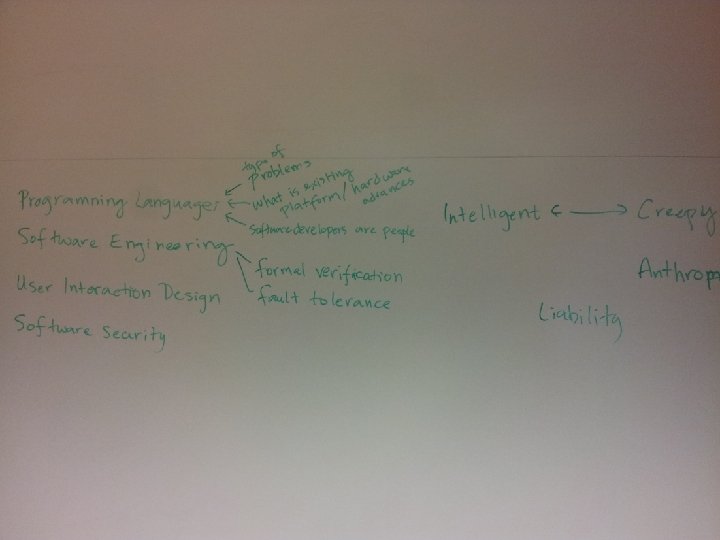 type of
problems
what is existing
platform/hardware
advances
Programming Languages
software developers are people
Software Engineering
formal verification
fault tolerance
User Interaction Design
Software Security
Intelligent ↔ Creepy
Anthrop
Liability